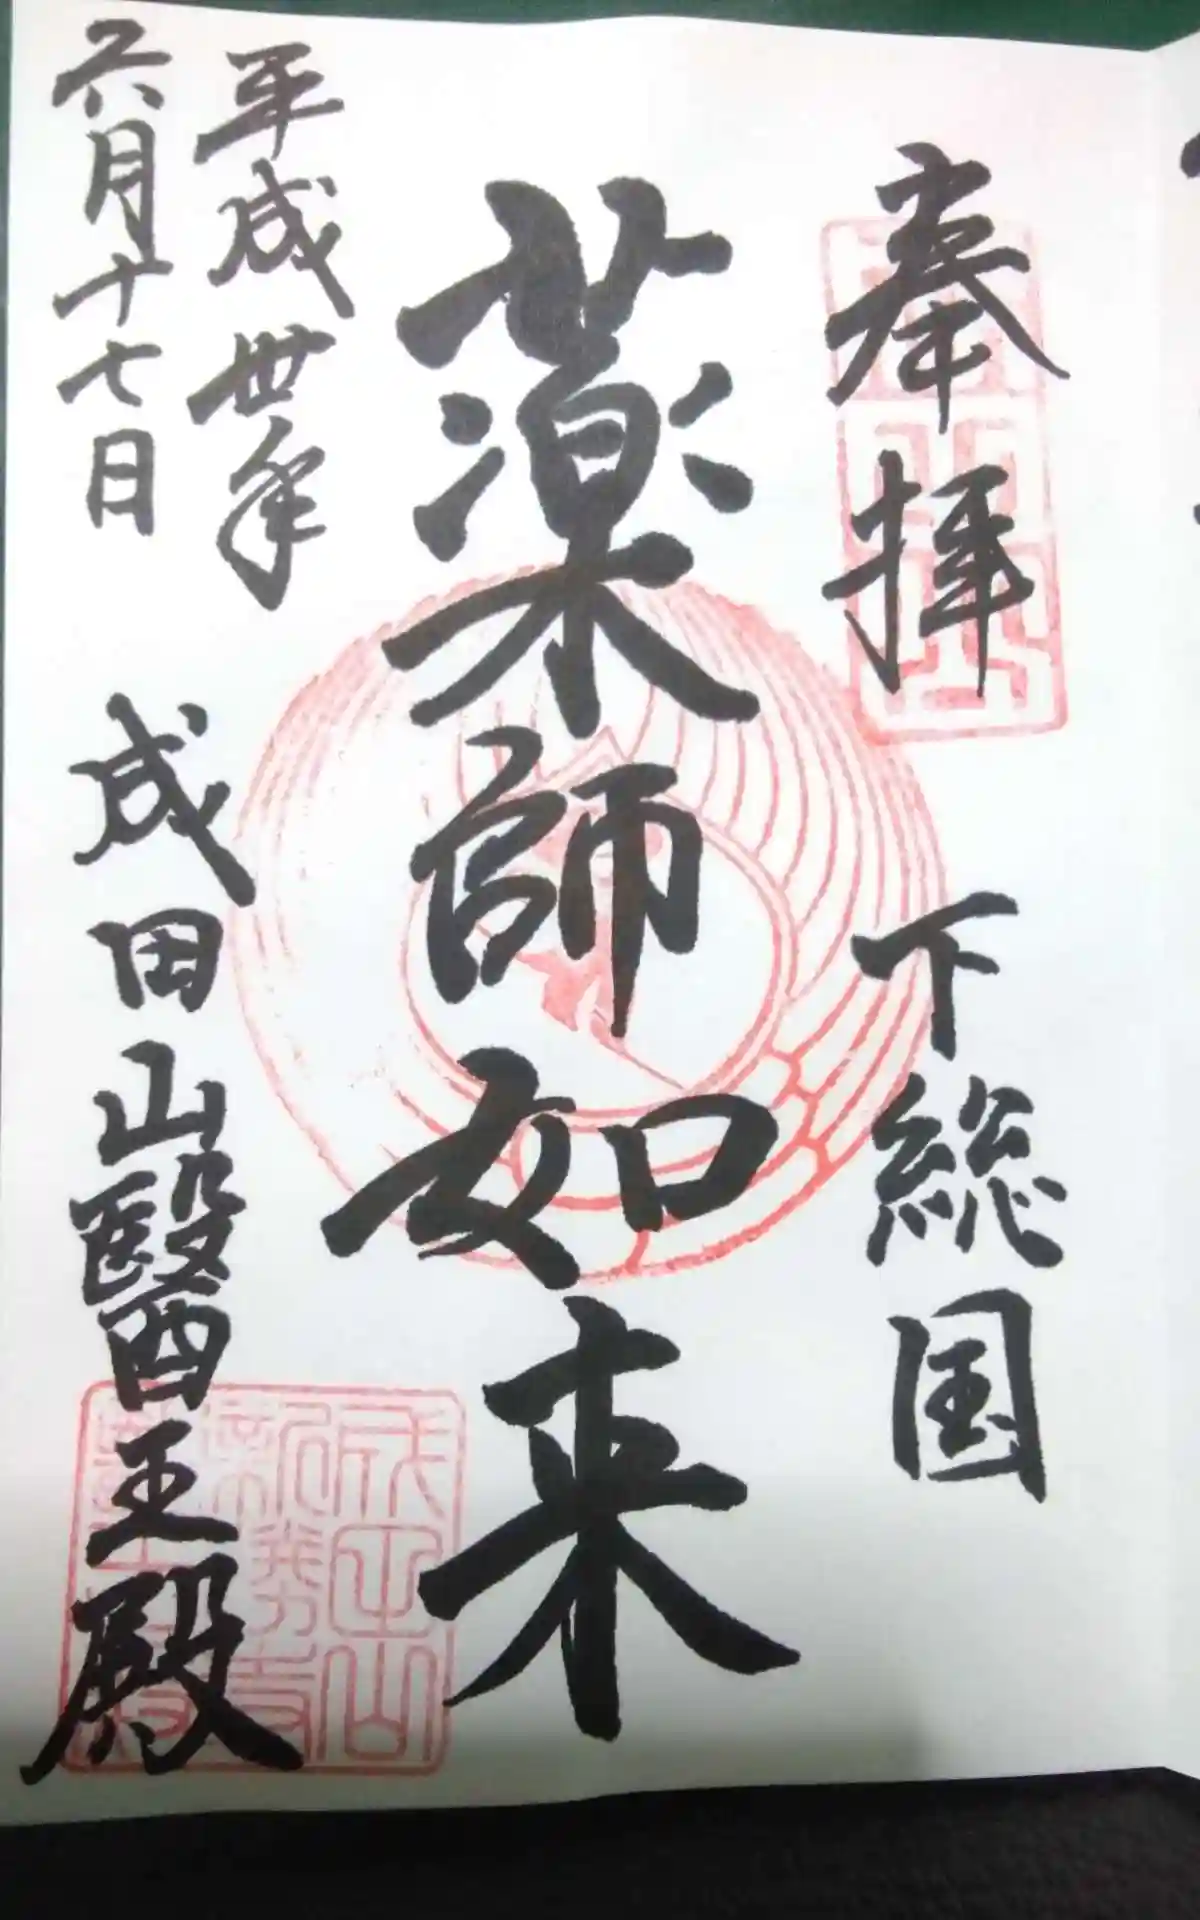 奉拝
下総国
薬師如来
平成卅年
六月十七日
成田山醫王殿
成田山
新勝寺